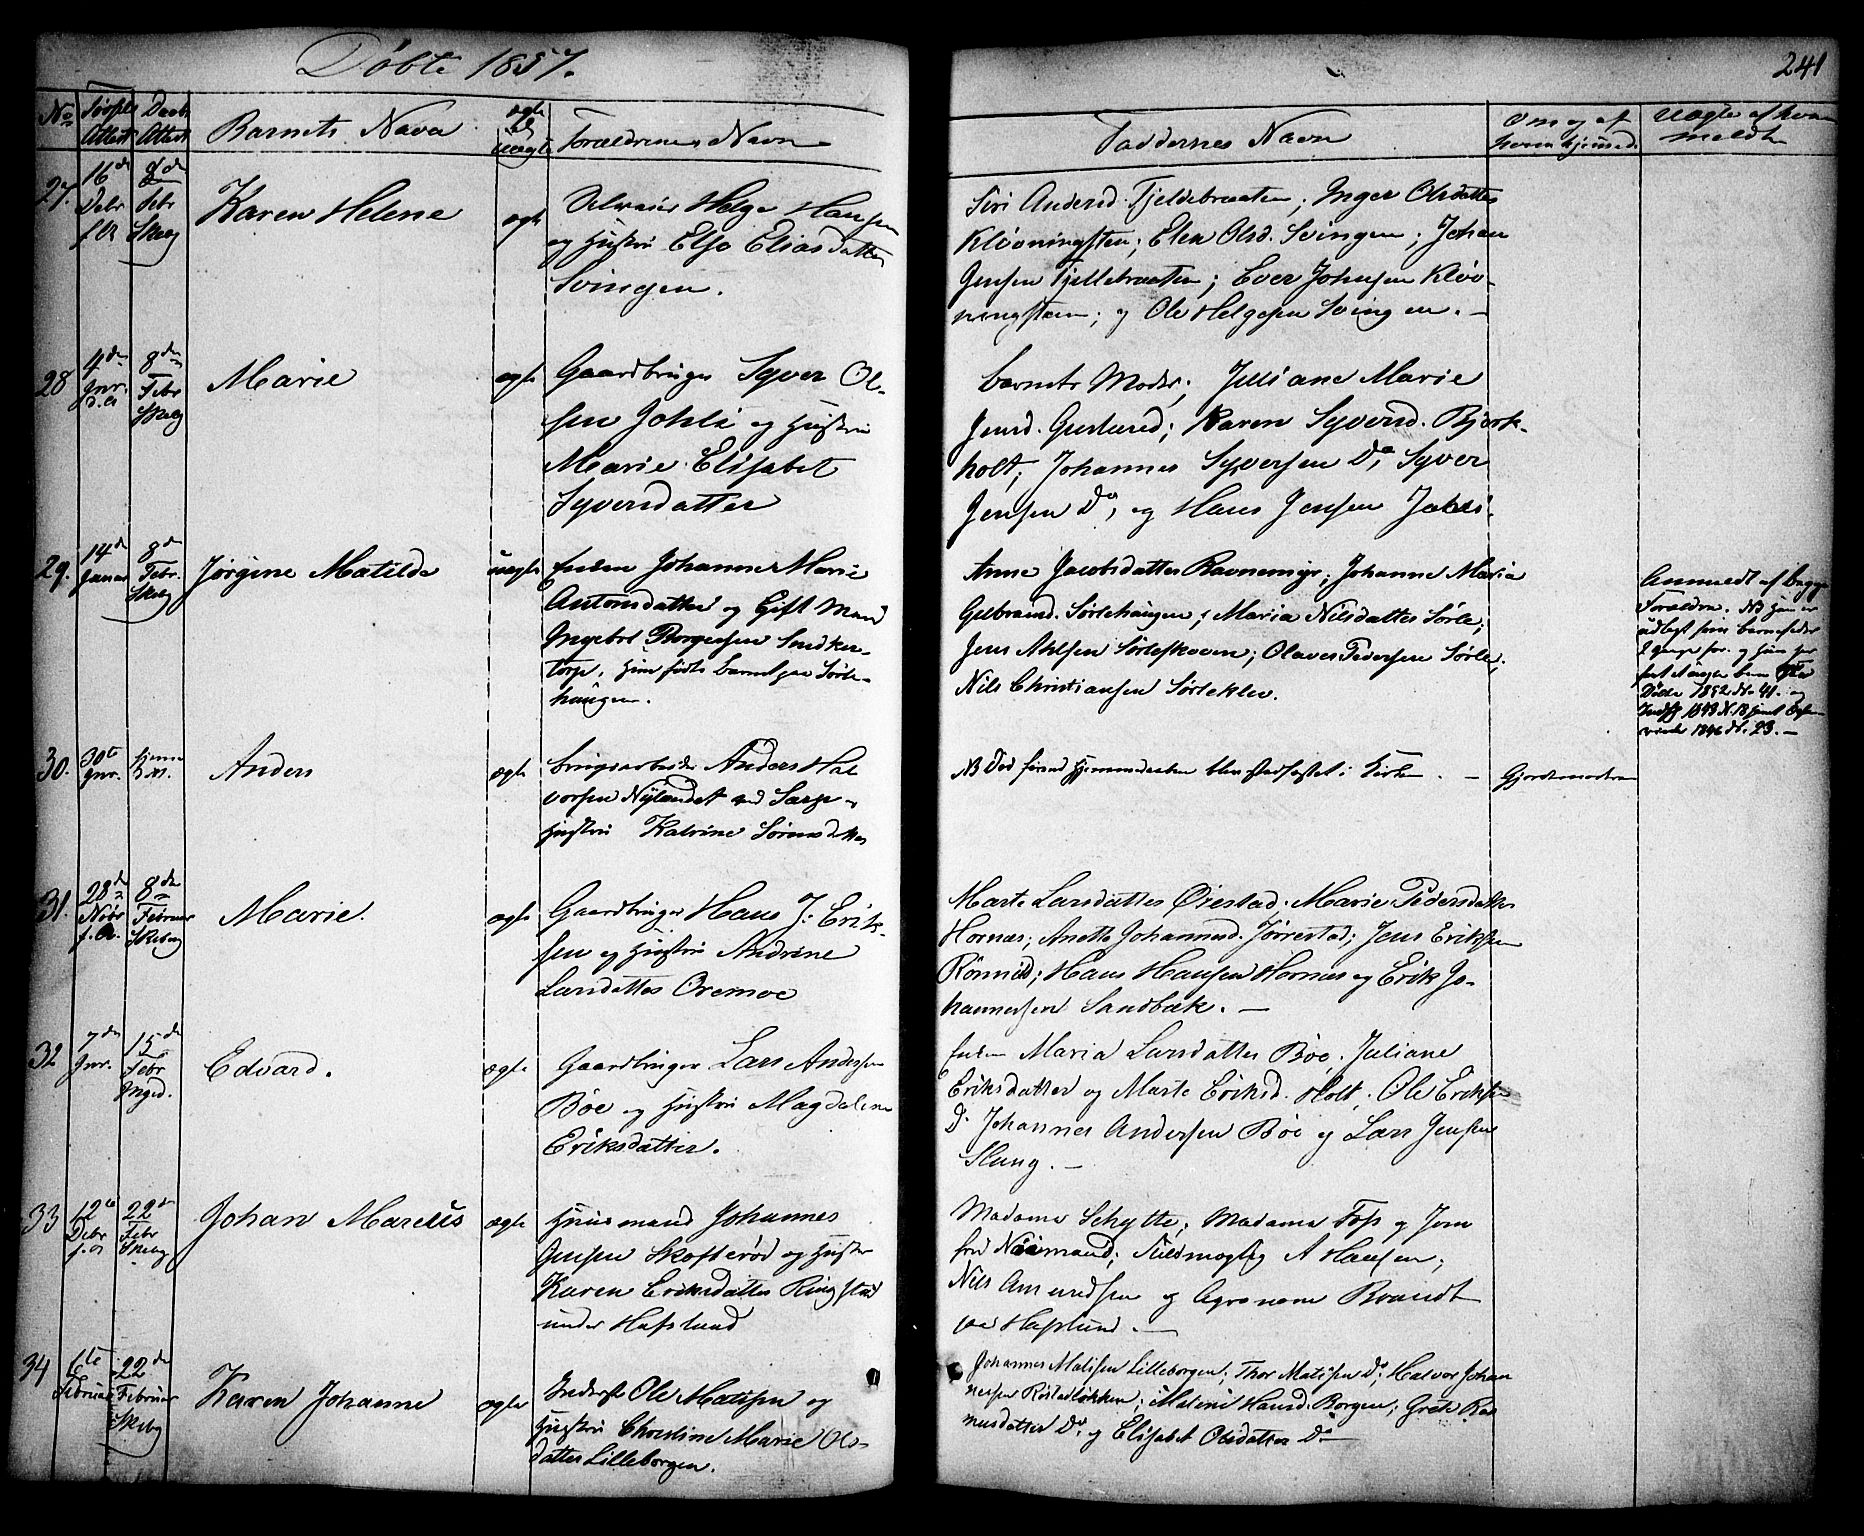 Døbte 1857.
241
No
Dato
Barnets Navn
ægte
uægte
Forældrenes Navn
Faddernes Navn
Om og af
hvem hjemmed.
Uægte af hvem
meldt
27.
16de
Debr
f. A.
8de
Febr
Skeby
Karen Helene
ægte
Selveier Helge Hansen
og Hustru Else Eliasdatter
Svingen.
Siri Andersd. Fjeldebraaten; Inger Olsdatter
Kløvningsten; Elen Olsd. Svingen; Johan
Jensen Fjellebraaten; Ever Johnsen Kløv-
ningsten; og Ole Helgesen Svingen. —
28
4de
Jnr.
d. A.
8de
Febr
Skeby
Marie
ægte
Gaardbruger Syver Ol-
sen Johli og Hustru
Marie Elisabet
Syversdatter
Barnets Moder; Julliane Marie
Jensd. Gustured; Karen Syversd. Bjørk-
holt; Johannes Syversen Do, Syver
Jensen Do, og Hans Jensen
29.
14de
Januar
8de
Febr.
Skeby
Jørgine Matilde
uægte
Enken Johanne Marie
Antonsdatter og Gift Mand
Ingebret Borgersen
torp. Hun fødte Barnet paa Sørle-
haugen.
Anne Jacobsdatter Ravnemyr; Johanne Maria
Gulbrandsd. Sørlehaugen; Maria Nilsdatter Sørle;
Jens Ahlsen Sørleskoven; Olaves Pedersen Sørle;
Nils Christiansen Sørleklev.
Anmeldt af begge
Forældre. NB Han er
udlagt som Barnefader
2 Gange før. og hun har
født
Døbte 1852 No 41. og
1848 N. 18 samt
1846 No. 23. —
30.
30te
Jnr.
hjemme
Anders
ægte
Brugsarbeider Anders Hal
vorsen Nylandet ved Sarp
Hustru Katrine Sørensdatter
NB Død førend Hjemmedaaben blev stadfæstet i Kirken. —
Gjordemoderen
31.
28de
Nobr
f. A.
8de
Februar
Skeberg
Marie.
ægte
Gaardbruger Hans J. Erik-
sen og Hustru Andrine
Larsdatter Oremoe
Marte Larsdatter Ørestad. Marie Pedersdatter
Hornæs; Anette Johannesd. Jørrestad; Jens Eriksen
Rønnid; Hans Hansen Hornæs og Erik Jo-
hannessen Sandbæk. —
32
7de
Jnr.
15de
Febr
Inged.
Edvard.
ægte
Gaardbruger Lars Andersen
Bøe og Hustru Magdalene
Eriksdatter.
Enken Maria Larsdatter Bøe. Juliane
Eriksdatter og Marte Eriksd. Holt; Ole Eriksen
Do. Johannes Andersen Bøe og Lars Jensen
Slung. —
33
12te
Debr
f. A.
22de
Febr
Skeby
Johan Marcus
ægte
Huusmand Johannes
Jensen Skofterød og Hustru
Karen Eriksdatter Ringstad
under Hafslund
Madame Schytte; Madame Foss og Jom
fru Narmand; Fuldmægtig A Hansen;
Nils Amundsen og Agronom Brandt
paa Haflund. —
34
6te
Februar
22de
Februar
Skeby
Karen Johanne
ægte
Inderst Ole Matisen og
Hustru Christine Marie Ols-
datter Lilleborgen.
Johannes Matisen Lilleborgen; Thor Matisen Do; Halvor Johan
nessen Røstadløkken; Matine Hansd. Borgen; Grete Ras
musdatter Do. og Elisabet Olsdatter Do